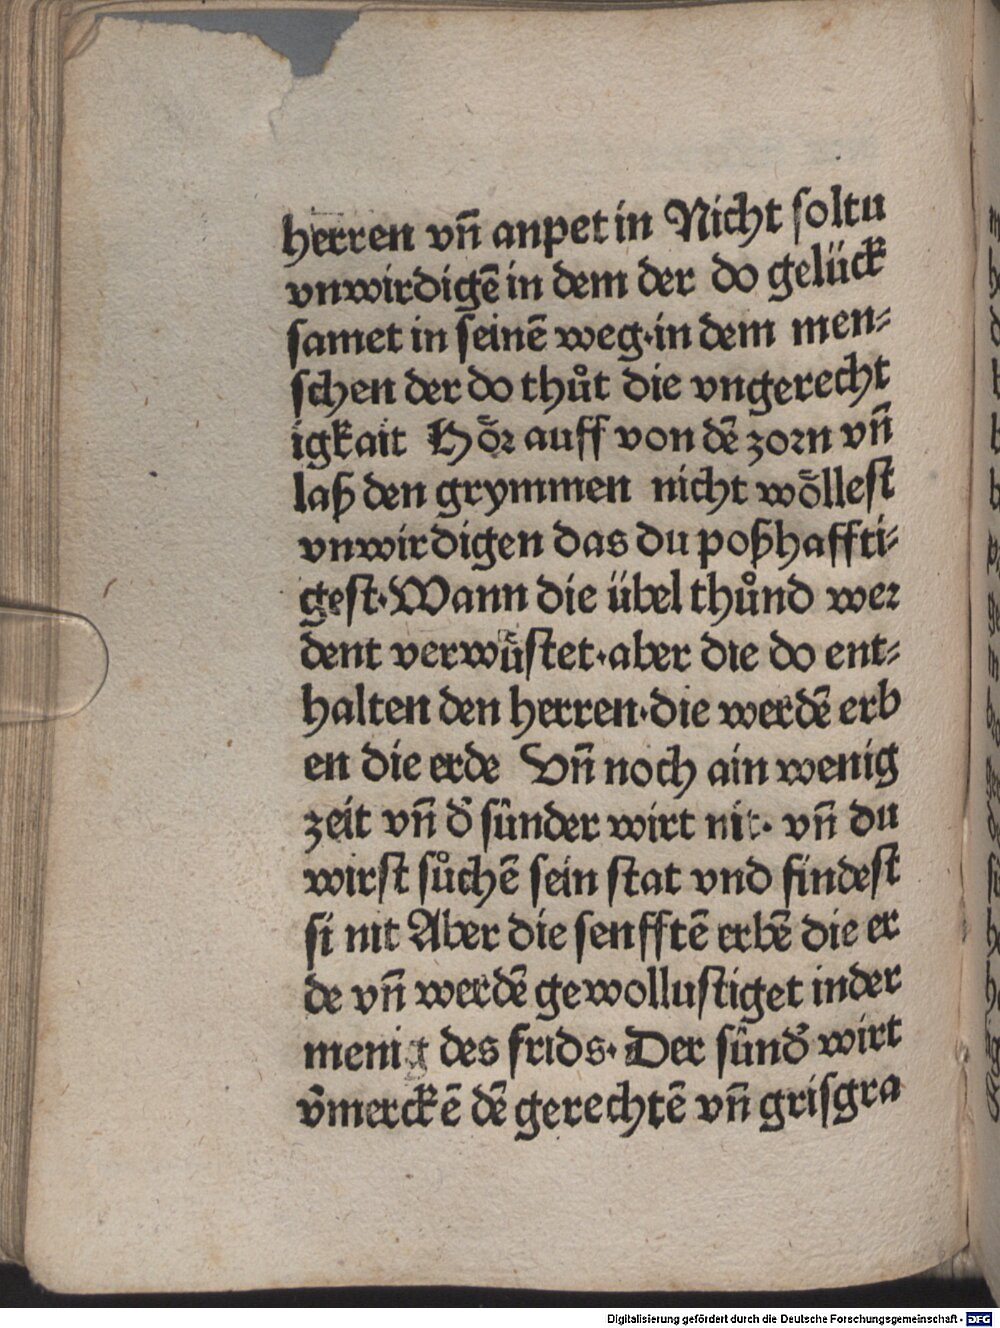 herren vñ anpet in Nicht soltu
vnwirdigē in dem der do gelück
samet in seinē weg·in dem men⸗
schen der do thůt die vngerecht
igkait Hoͤꝛ auff von dē zorn vñ
laß den grymmen nicht woͤllest
vnwirdigen das du poßhaffti⸗
gest·Wann die übel thůnd weꝛ
dent verwuͤstet·aber die do ent⸗
halten den herren·die werdē erb
en die erde Vñ noch ain wenig
zeit vñ d̉ sünder wirt nit· vñ du
wirst sůchē sein stat vnd findest
si nit Aber die senfftē erbē die er
de vñ werdē gewollustiget inder
menig des frids· Der sünd̉ wirt
v̉merckē dē gerechtē vñ grisgra
Digitalisierung gefördert durch die Deutsche Forschungsgemeinschaft - DFG